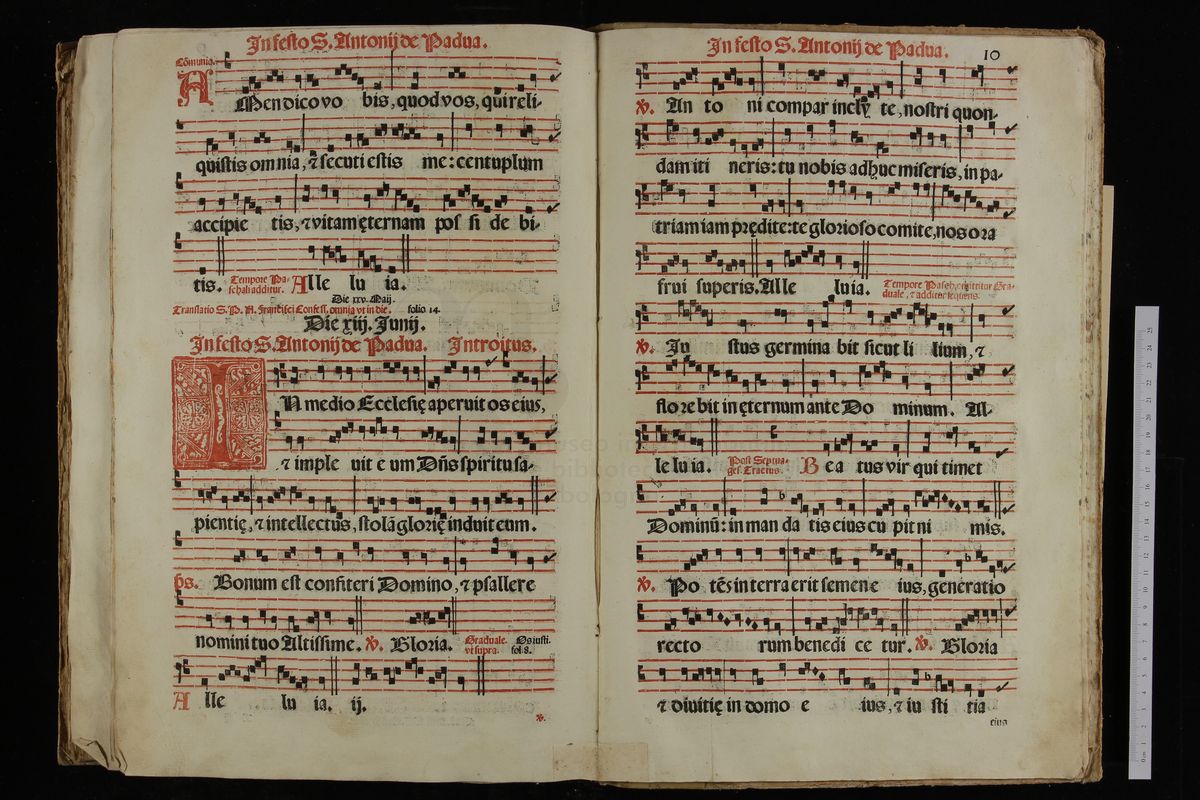 In festo S. Antonij de Padua.
Cōmunio.
AMen dico vo bis, quod vos, qui reli-
quistis omnia, ⁊ secuti estis me: centuplum
accipie tis, ⁊ vitam ęternam pos si de bi-
tis. Tempore Pa-
schali additur. Alle lu ia.
Die xxv. Maij.
Translatio S. P. N. Francisci Confess. omnia vt in die. folio 14.
Die xiij. Junij.
In festo S. Antonij de Padua. Introitus.
IN medio Ecclesię aperuit os eius,
⁊ imple uit e um Dñs spiritu sa-
pientię, ⁊ intellectus, stolā glorię induit eum.
ps. Bonum est confiteri Domino, ⁊ psallere
nomini tuo Altissime. ℣. Gloria. Graduale.
vt supra. Os iusti.
fol. 8.
Alle lu ia. ij.
℣.
In festo S. Antonij de Padua. 10
℣. An to ni compar incly te, nostri quon-
dam iti neris: tu nobis adhuc miseris, in pa-
triam iam prędite: te glorioso comite, nos ora
frui superis. Alle luia. Tempore Pasch. omittitur Gra-
duale, ⁊ additur sequens.
℣. Ju stus germina bit sicut li lium, ⁊
flore bit in ęternum ante Do minum. Al-
le lu ia. Post Septua-
ges. Tractus. Be a tus vir qui timet
Dominū: in man da tis eius cu pit ni mis.
℣. Po tēs in terra erit semen e ius, generatio
recto rum benedi ce tur. ℣. Gloria
⁊ diuitię in domo e ius, ⁊ iu sti tia
eius